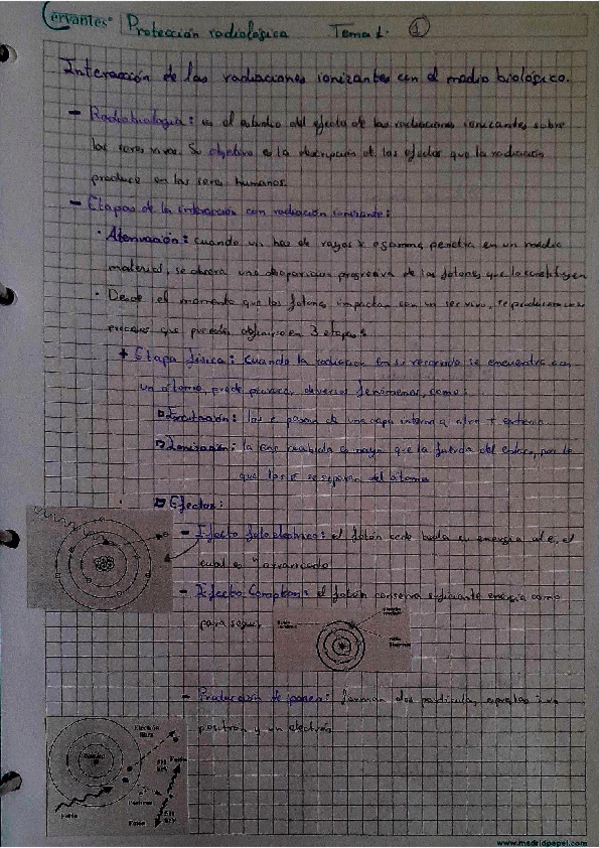 Cervantes Protección radiológica Tema 1. ①
Interacción de las radiaciones ionizantes con el medio biológico.
- Radiobiología: es el estudio del efecto de las radiaciones ionizantes sobre
los seres vivos. Su objetivo es la descripción de los efectos que la radiación
produce en los seres humanos.
- Etapas de la interacción con radiación ionizante:
· Atenuación: cuando un haz de rayos X o gamma, penetra en un medio
material, se observa una desaparición progresiva de los fotones que lo constituyen
· Desde el momento que los fotones impactan con un ser vivo, se producen unos
procesos que pueden en 3 etapas
+ Etapa física: cuando la radiación en su recorrido se encuentra con
un átomo, puede diversos fenómenos, como:
Excitación: los e pasan de una capa interna a otra + externa
Ionización: la ene recibida es mayor que la fuerza del enlace, por lo
que los e se separan del átomo
Efectos:
- Efecto fotoeléctrico: el fotón cede toda su energía al e, el
cual es "arrancado
- Efecto Compton: el fotón conserva suficiente energía como
para seguir
- Producción de pares: forman dos partículas, un
positrón y un electrón
Electrón
libre
Fotón
Positrón
Fotón
511
KeV
Fotón
www.madridpapel.com